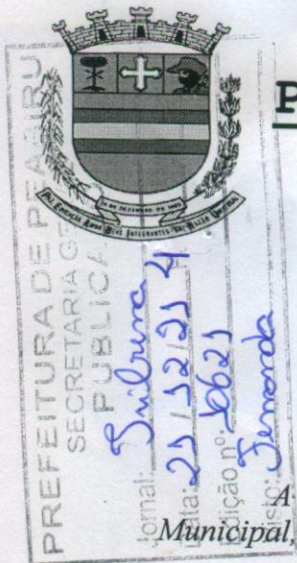 P
14 DE DEZEMBRO DE 1952
PREFEITURA DE PEABIRU
SECRETARIA GE
PUBLICA
Jornal: Tribuna
Data: 21/12/21
dição nº: 10621
isto: Fernanda
A
Municipal,